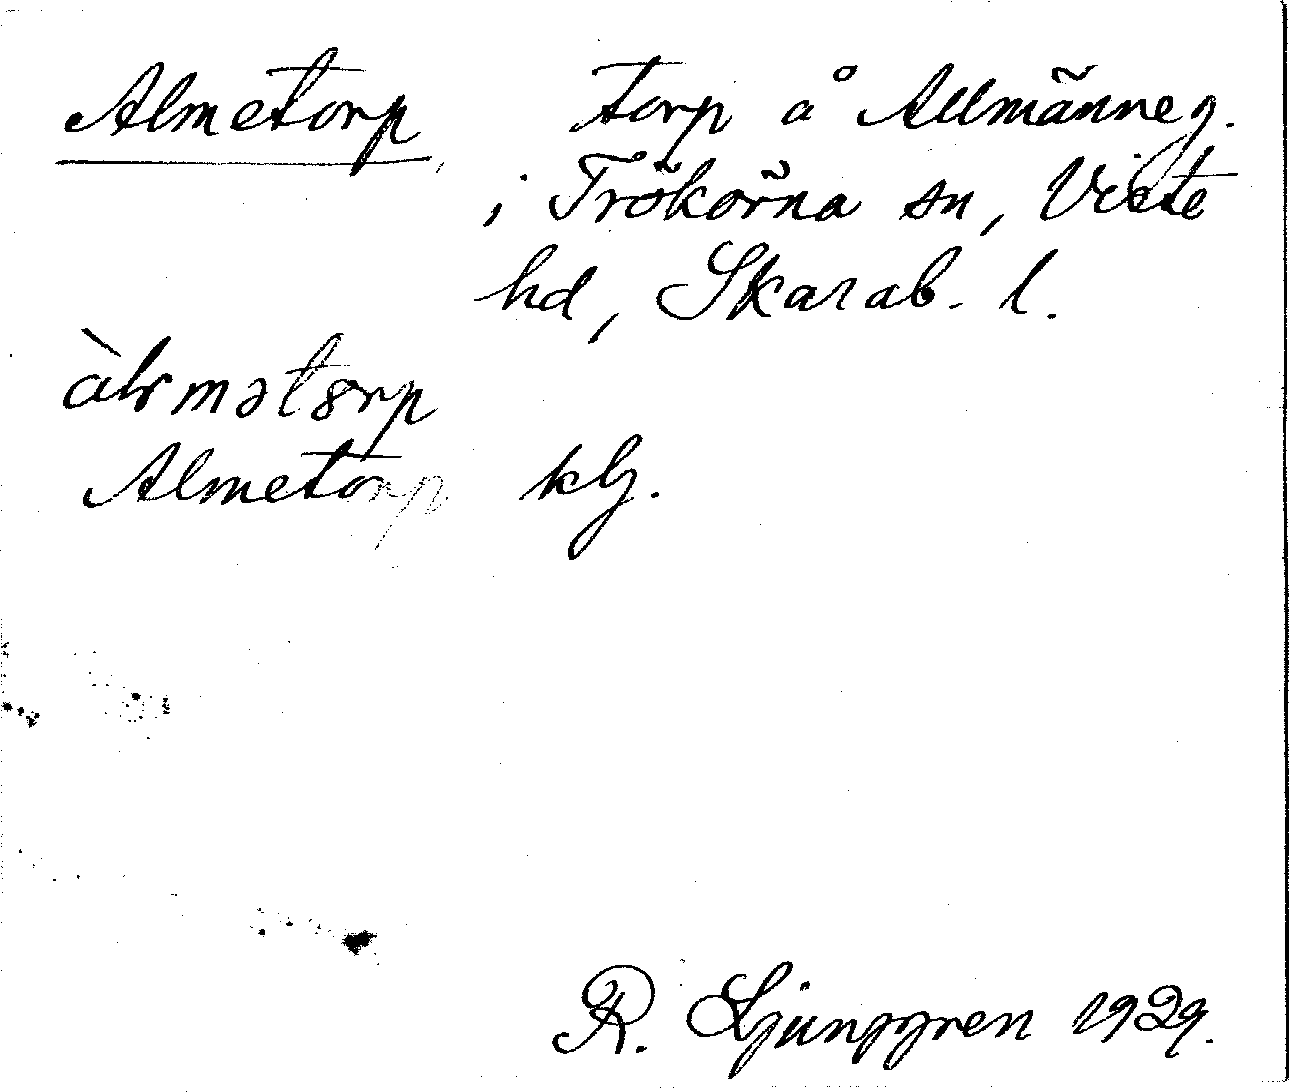 Almetorp, torp å Allmänneg.
i Trökörna sn, Viste
hd, Skarab. l.
àlmətorp
Almetorp klj.
R. Ljunggren 1929.